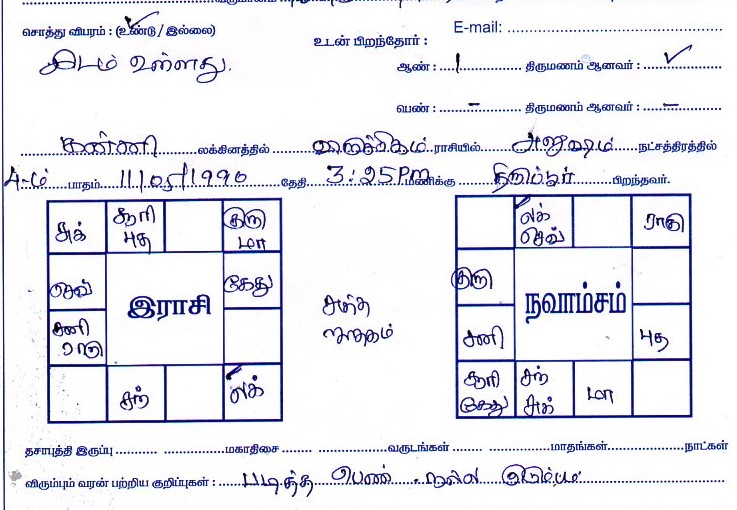 சொத்து விபரம் : (உண்டு / இல்லை)
E-mail:
உடன் பிறந்தோர் :
இடம் உள்ளது.
ஆண் : 1 திருமணம் ஆனவர் : ✓
பெண் : - திருமணம் ஆனவர் : -
கன்னி லக்கினத்தில் ராசியில் அனுஷம் நட்சத்திரத்தில்
4-ம் பாதம் 11/05/1990 தேதி 3:25 PM மணிக்கு திருப்பூர் பிறந்தவர்.
சுக் சூரி புத குரு மா
லக் செவ் ராகு
செவ் கேது
குரு
இராசி
சுத்த ஜாதகம்
நவாம்சம்
சனி ராகு
சனி புத
சந் லக்
சூரி கேது சந் சுக் மா
தசாபுத்தி இருப்பு மகாதிசை வருடங்கள் மாதங்கள் நாட்கள்
விரும்பும் வரன் பற்றிய குறிப்புகள் : படித்த பெண். நல்ல குடும்பம்